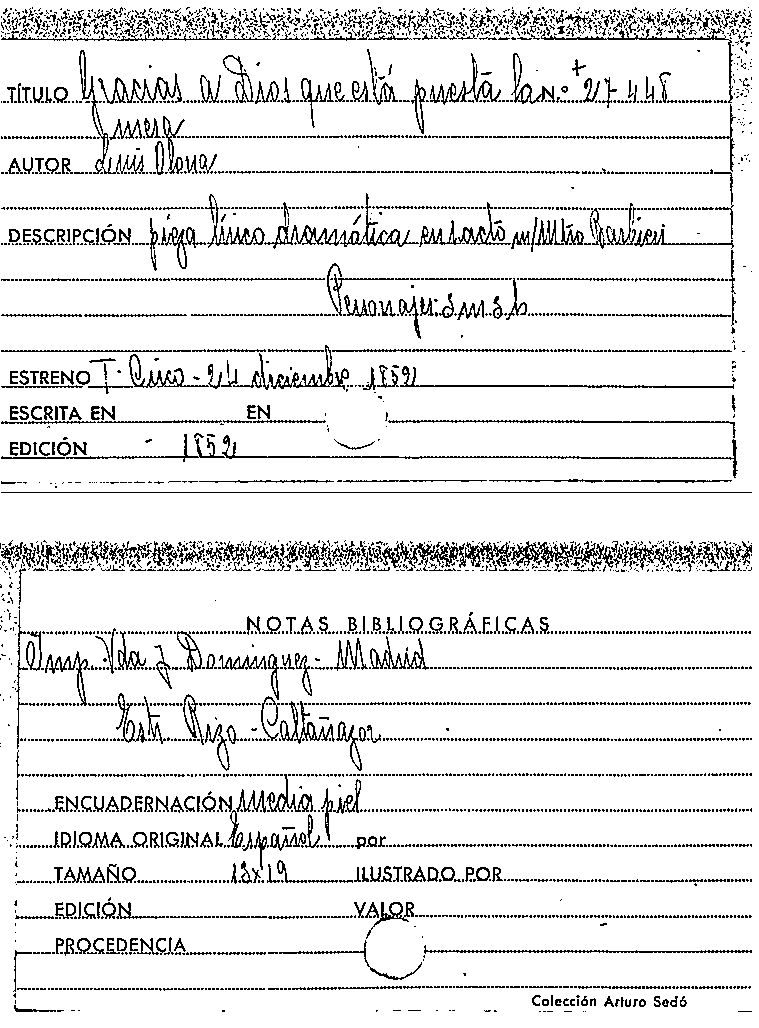 TÍTULO Gracias a Dios que está puesta la N.º + 27448
mesa
AUTOR Luis Olona
DESCRIPCIÓN pieza lírico dramática en 1 acto m/Mtro Barbieri
Personajes 3 m 3 h
ESTRENO T. Circo - 24 diciembre 1852
ESCRITA EN EN
EDICIÓN - 1852
NOTAS BIBLIOGRÁFICAS
Imp. Vda J Dominguez - Madrid
Estr. Rizo - Caltañazor
ENCUADERNACIÓN media piel
IDIOMA ORIGINAL Español por
TAMAÑO 13x19 ILUSTRADO POR
EDICIÓN VALOR
PROCEDENCIA
Colección Arturo Sedó